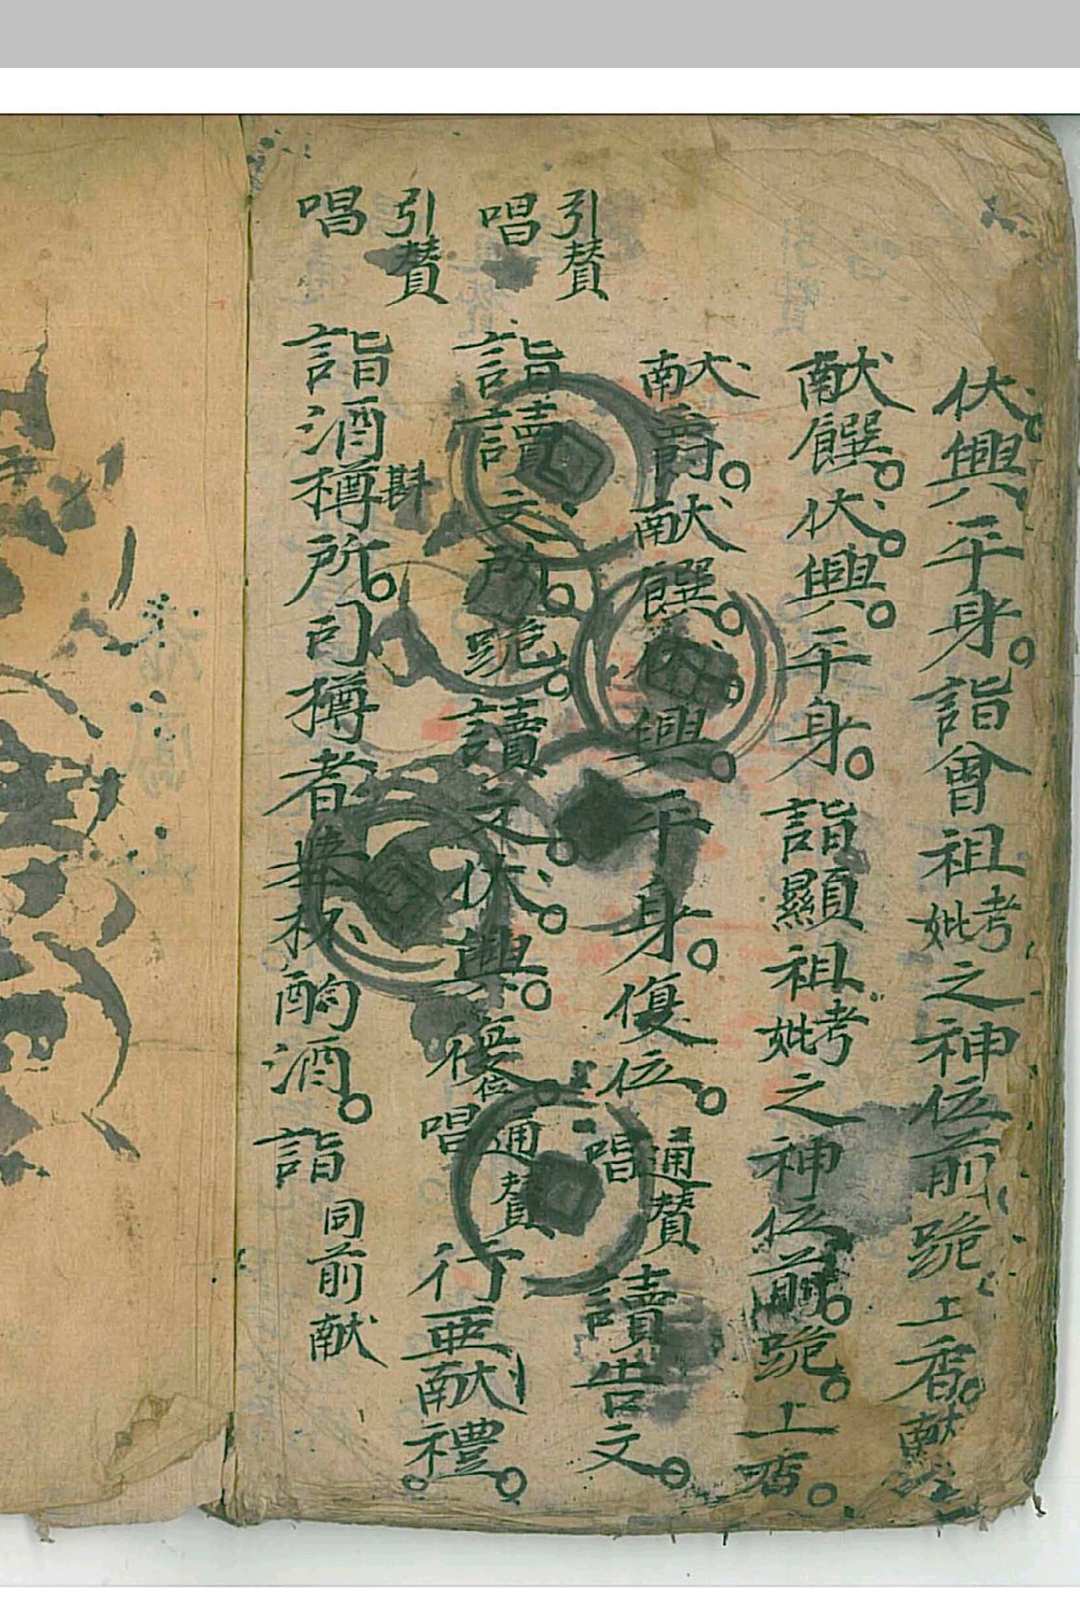 伏興平身。詣曾祖考妣之神位前跪上香。献
献饌。伏。興。平身。詣顯祖考妣之神位前。跪。上香。
献爵。献饌。伏。興。平身。復位。唱通贊讀告文。
引贊唱詣讀文所。跪。讀文。伏。興。復位唱通贊行亜献禮。
引贊唱詣酒樽所。司樽者舉冪酌酒。詣同前献
斟